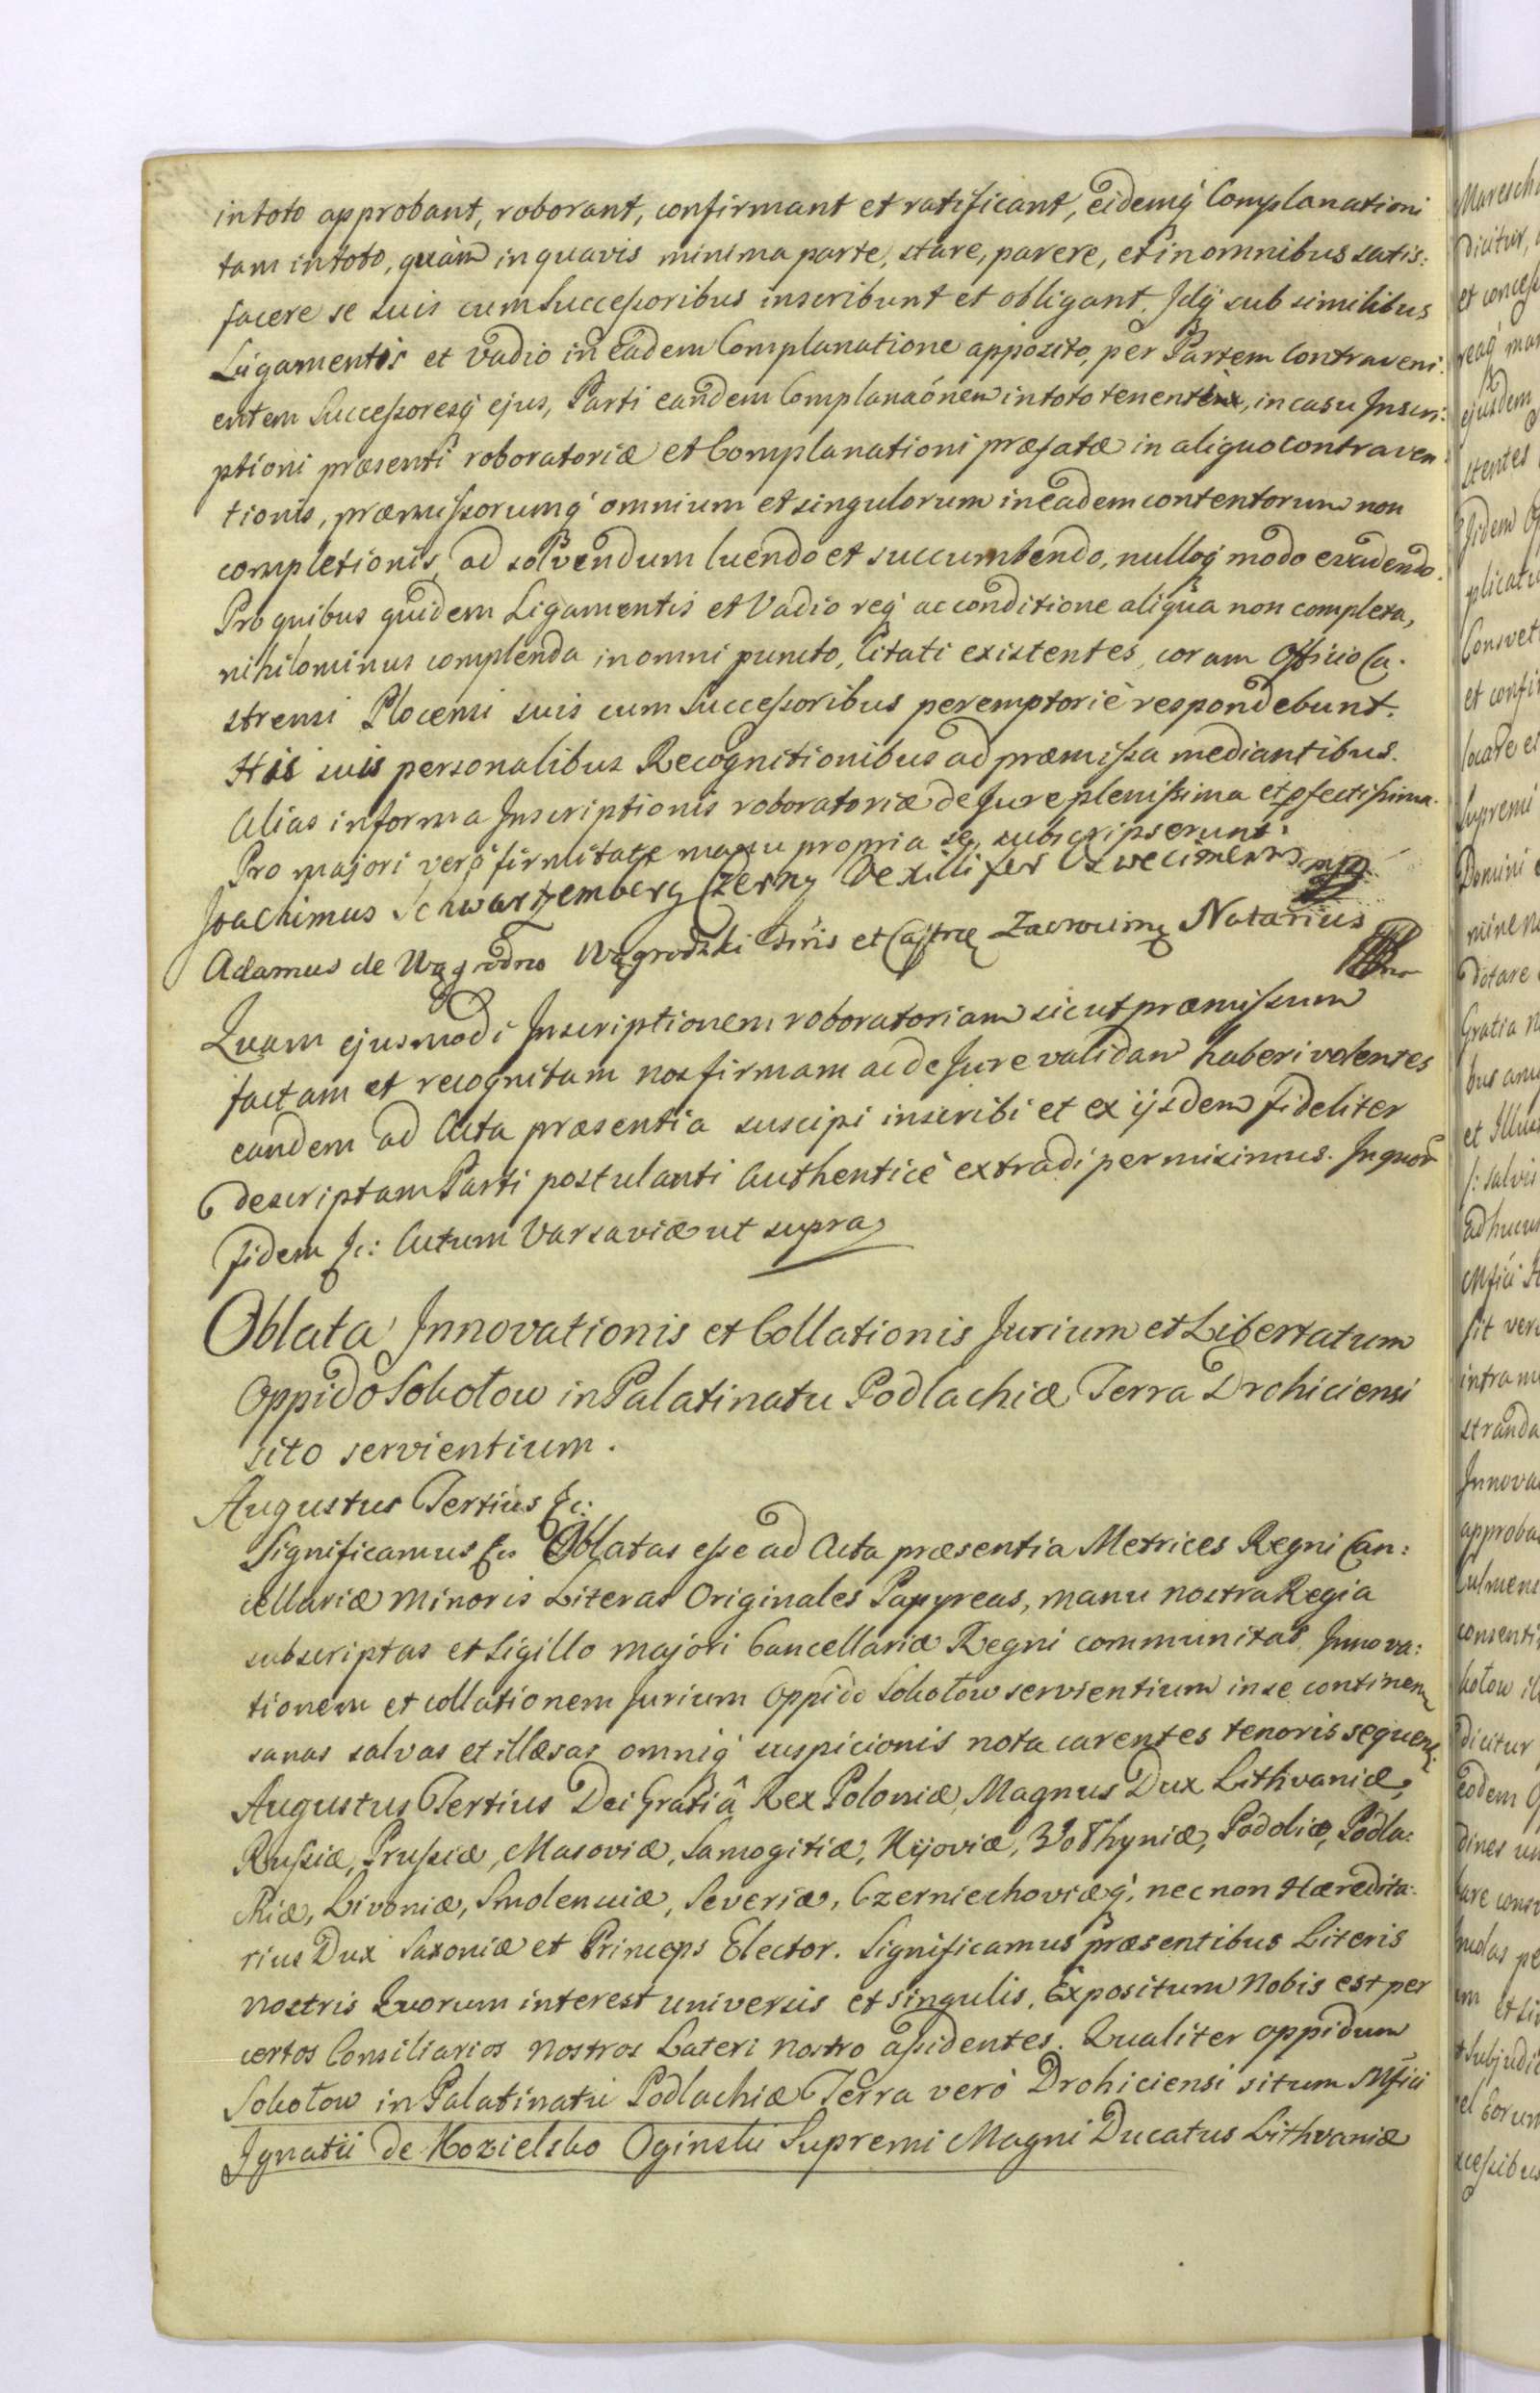 in toto approbant, roborant, confirmant et ratificant, eidemq́ Complanationi
tam in toto, quàm in quavis minima parte, stare, parere, et in omnibus satis:
facere se suis cum Successoribus inscribunt et obligant. Idq́ sub similibus
Ligamentis et Vadio in eadem Complanatione apposito, per Partem Contraveni:
entem Successoresq́ ejus, Parti eandem Complanaónem in toto tenenti, in casu Inscri:
ptioni præsenti roboratoriæ et Complanationi præfatæ in aliquo contraven:
tionis, præmissorumq́ omnium et singulorum in eadem contentorum non
completionis, ad solvendum luendo et succumbendo, nulloq́ modo evadendo.
Pro quibus quidem Ligamentis et Vadio req́ ac conditione aliqua non completa,
nihilominus complenda in omni puncto, Citati existentes, coram Officio Ca:
strensi Plocensi suis cum Successoribus peremptoriè respondebunt.
His suis personalibus Recognitionibus ad præmissa mediantibus.
Alias in forma Inscriptionis roboratoriæ de Jure plenissima et pfectissima.
Pro majori verò firmitate manu propria se subscripserunt.
Joachimus Schwartzemberg Czerny Vexillifer Oswecimensis mp
Adamus de Wągrodno Wągrodzki Tris et Castrę Zacrocimę Notarius
Quam ejusmodi Inscriptionem roboratoriam sicut præmissum
factam et recognitam nos firmam ac de Jure validam haberi volentes
eandem ad Acta præsentia suscipi inscribi et ex ijsdem fideliter
descriptam Parti postulanti Authenticè extradi permisimus. In quor
fidem &c: Actum Varsaviæ ut supra
Oblata Innovationis et Collationis Jurium et Libertatum
Oppido Sokołow in Palatinatu Podlachiæ Terra Drohiciensi
sito servientium.
Augustus Tertius &c:
Significamus &c Oblatas esse ad Acta præsentia Metrices Regni Can:
cellariæ Minoris Literas Originales Papyreas, manu nostra Regia
subscriptas et Sigillo majori Cancellariæ Regni communitas, Innova:
tionem et collationem Jurium Oppido Sokołow servientium in se continen
sanas salvas et illæsas omniq́ suspicionis nota carentes tenoris sequen
Augustus Tertius Dei Gratiâ Rex Poloniæ, Magnus Dux Lithvaniæ,
Russiæ, Prussiæ, Masoviæ, Samogitiæ, Kijoviæ, Volhyniæ, Podoliæ, Podla:
chiæ, Livoniæ, Smolensciæ, Severiæ, Czerniechoviæq́, nec non Hæredita:
rius Dux Saxoniæ et Princeps Elector. Significamus præsentibus Literis
nostris Quorum interest universis et singulis, Expositum Nobis est per
certos Consiliarios Nostros Lateri Nostro assidentes. Qualiter Oppidum
Sokołow in Palatinatu Podlachiæ Terra verò Drohiciensi situm Mfici
Ignatii de Kozielsko Oginski Supremi Magni Ducatus Lithvaniæ